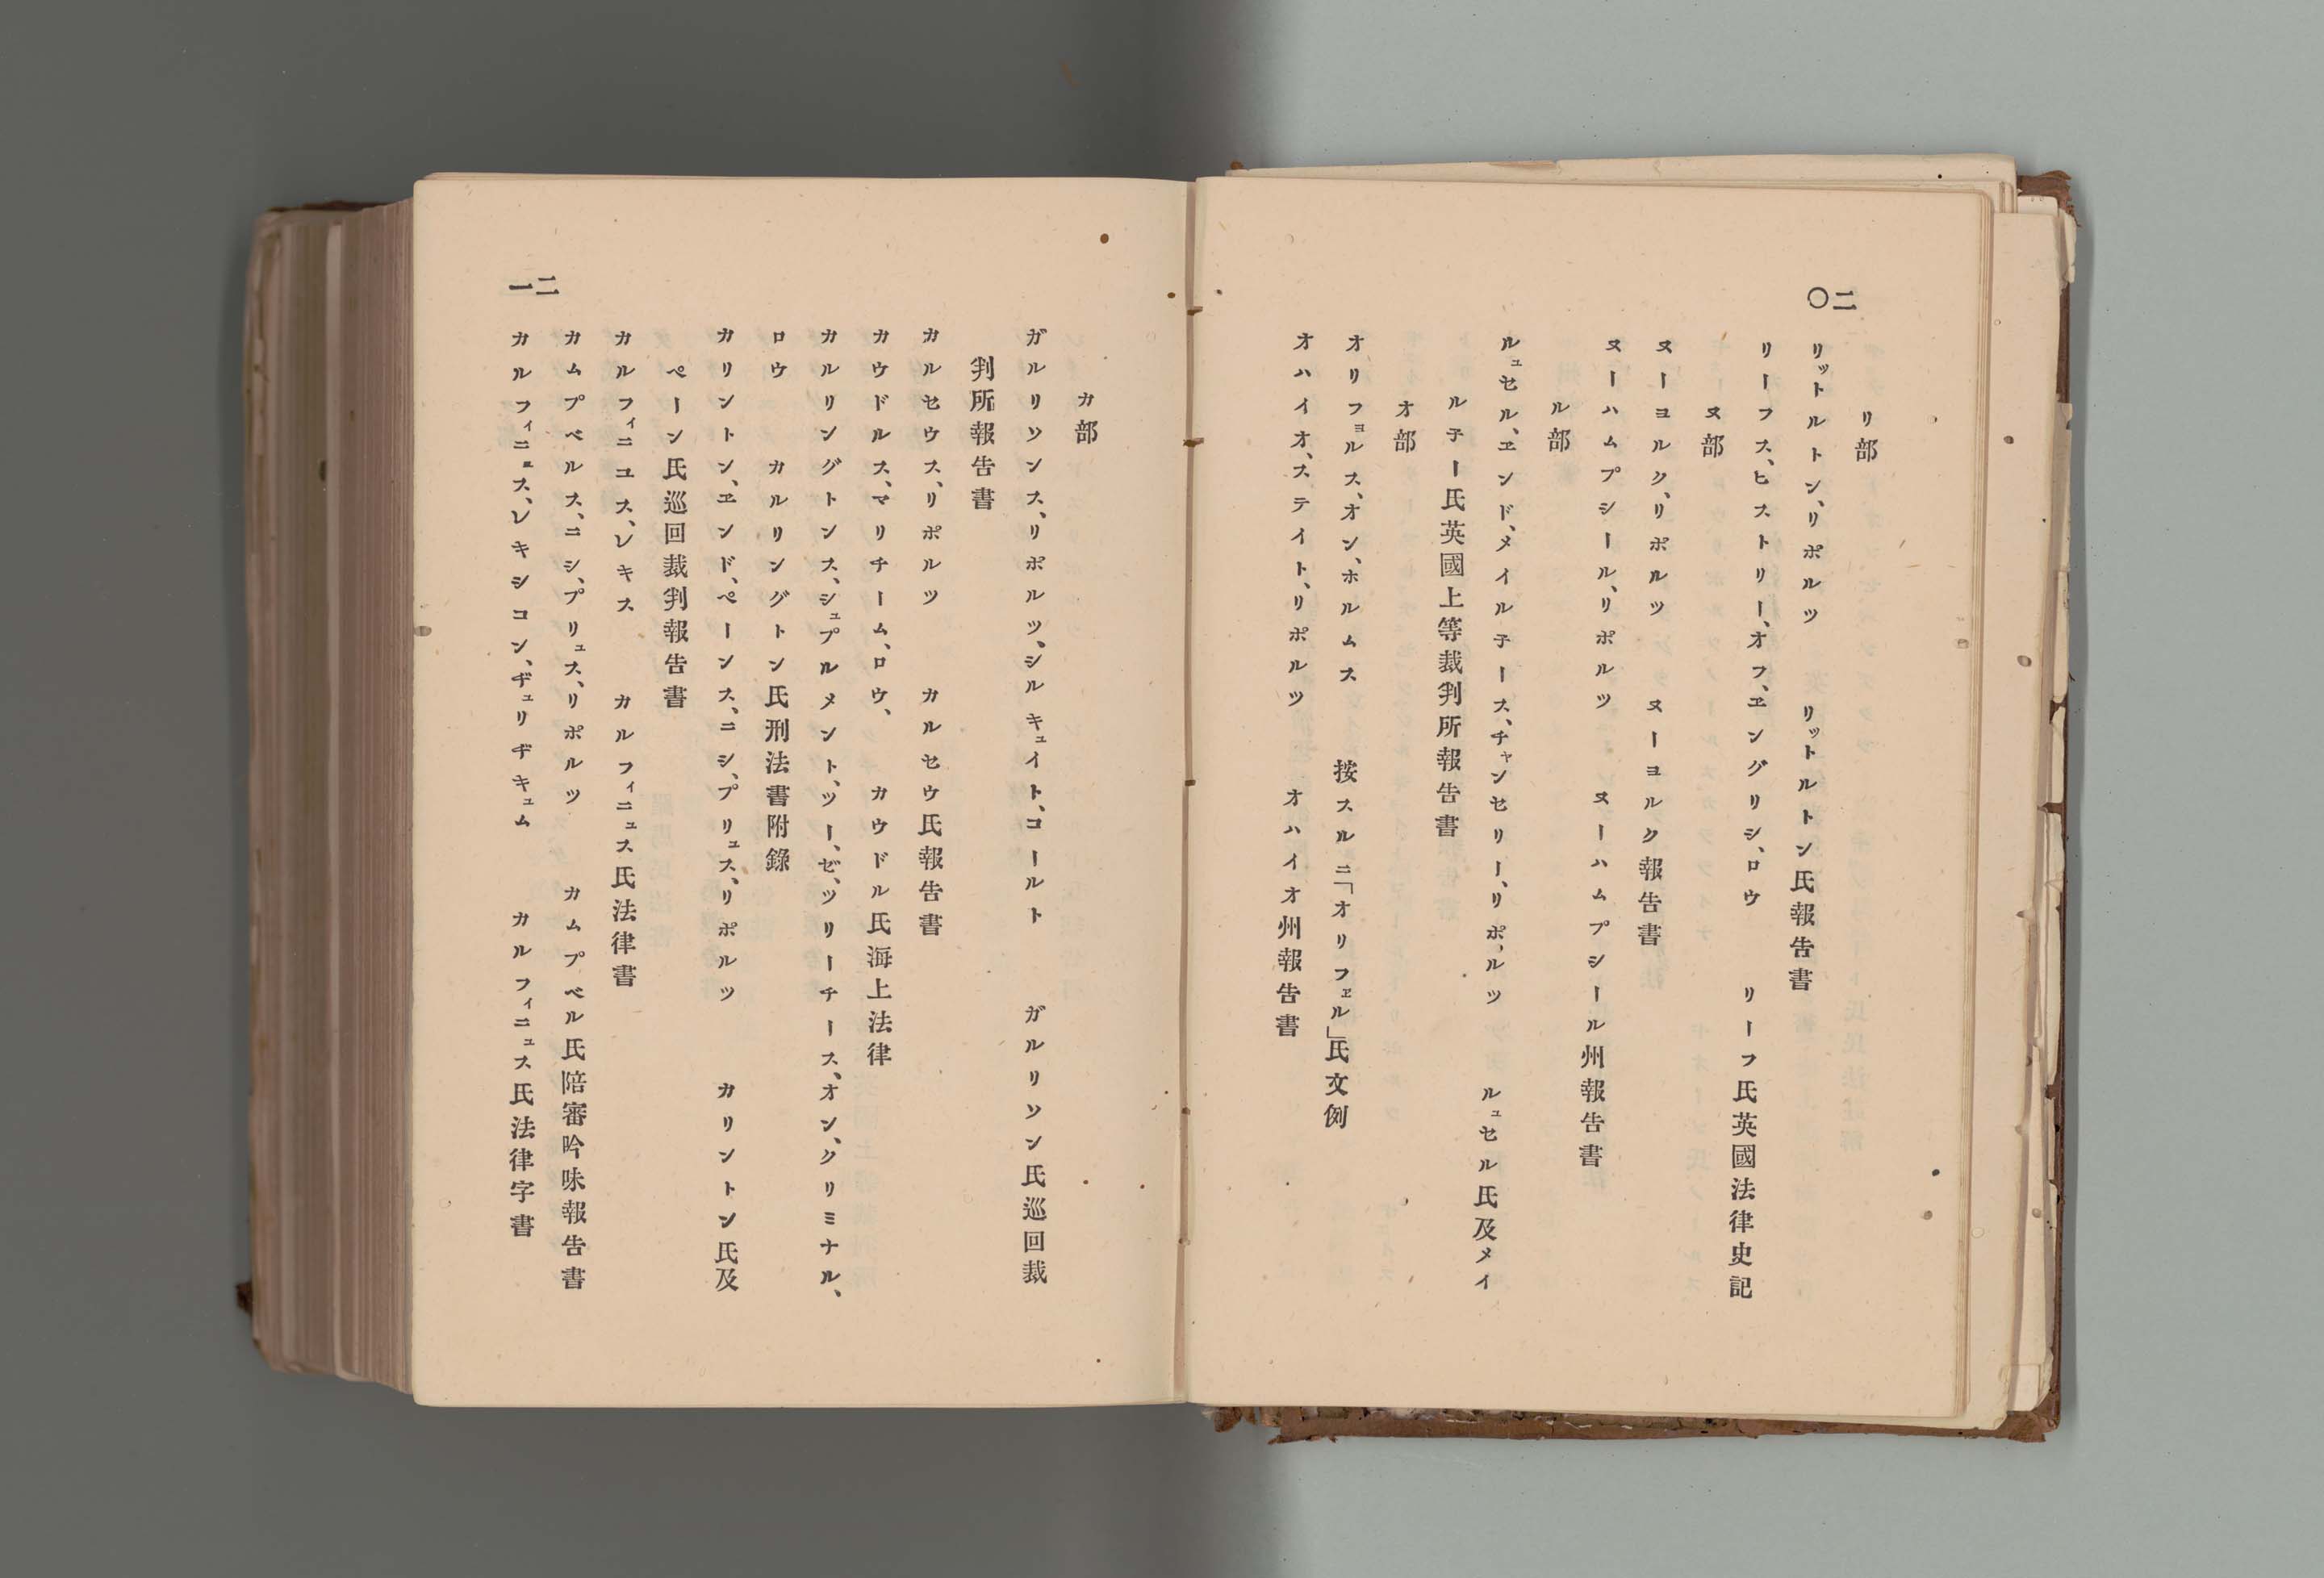 二〇
リ部
リットルトン、リポルツ　リットルトン氏報告書
リーフス、ヒストリー、オフ、ヱングリシ、ロウ　リーフ氏英國法律史記
ヌ部
ヌーヨルク、リポルツ　ヌーヨルク報告書
ヌーハムプシール、リポルツ　ヌーハムプシール州報告書
ル部
ルュセル、ヱンド、メイル子ース、チャンセリー、リポルツ　ルュセル氏及メイ
ル子ー氏英國上等裁判所報告書
オ部
オリフョルス、オン、ホルムス　按スルニ「オリフェル」氏文例
オハイオ、ステイト、リポルツ　オハイオ州報告書
二一
カ部
ガルリソンス、リポルツ、シルキュイト、コールト　ガルリソン氏巡回裁
判所報告書
カルセウス、リポルツ　カルセウ氏報告書
カウドルス、マリチーム、ロウ、　カウドル氏海上法律
カルリングトンス、シュプルメント、ツー、ゼ、ツリーチース、オン、クリミナル、
ロウ　カルリングトン氏刑法書附錄
カリントン、ヱンド、ペーンス、ニシ、プリュス、リポルツ　カリントン氏及
ペーン氏巡回裁判報告書
カルフィニユス、レキス　カルフィニュス氏法律書
カムプベルス、ニシ、プリュス、リポルツ　カムプベル氏陪審吟味報告書
カルフィニュス、レキシコン、ヂュリヂキュム　カルフィニュス氏法律字書